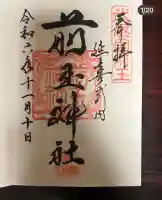 1/20
奉拝
延喜式内
前玉神社
令和六年十一月十日